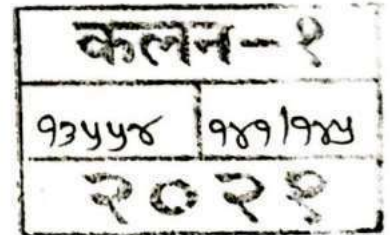 कलन-१
१३५५४ १४१/१४५
२०२१